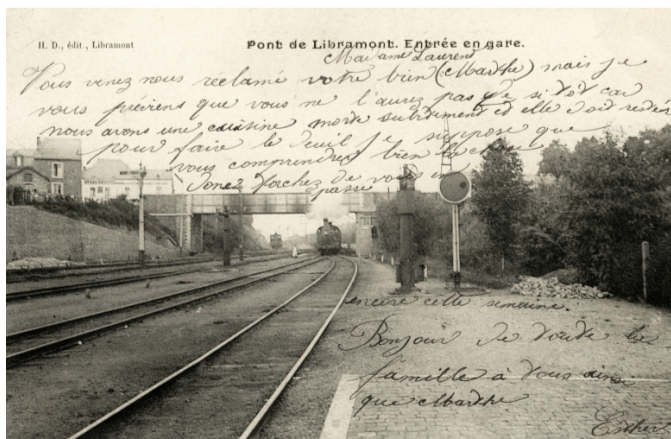 H. D., édit., Libramont
Pont de Libramont. Entrée en gare.
Madame Laurent
Vous venez nous reclamé votre bien (Marthe) mais je
vous préviens que vous ne l'aurez pas si tôt car
nous avons une cuisine morte subitement et elle doit rester
pour faire le deuil je suppose que
vous comprendrez bien la chose
donez fachez de vous en
passé
encore cette semaine.
Bonjour de toute la
famille à vous ainsi
que Marthe
Esther